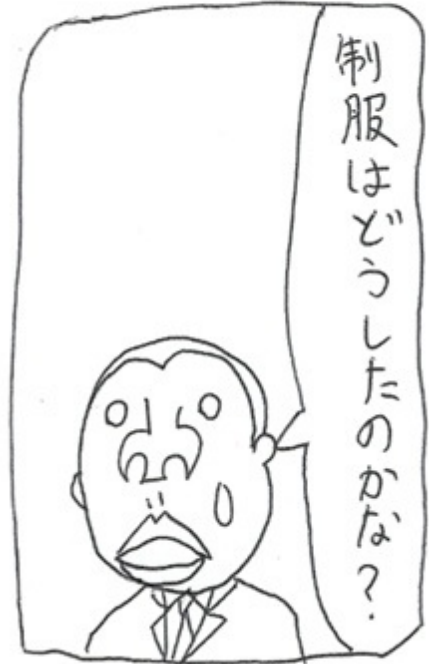 制服はどうしたのかな?